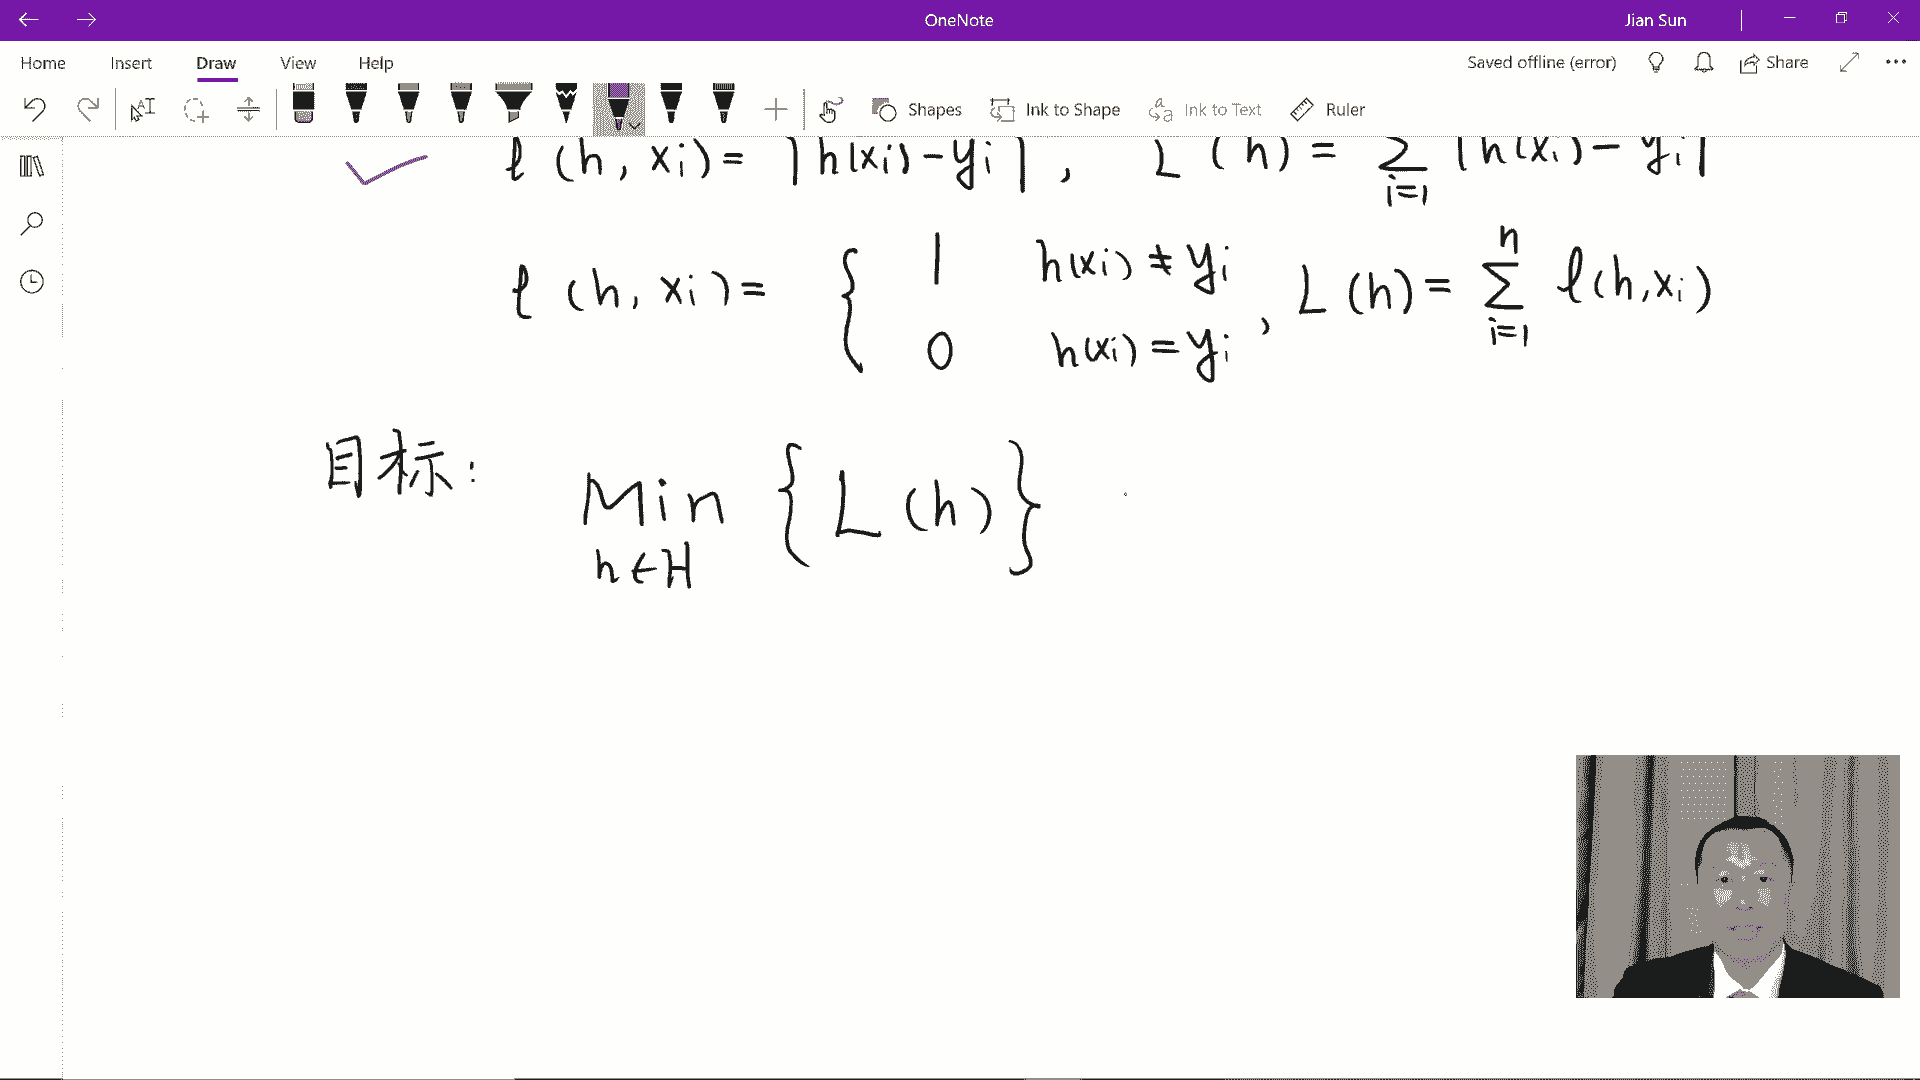 OneNote
Jian Sun
Home Insert Draw View Help
Saved offline (error) Share
Shapes Ink to Shape Ink to Text Ruler
ℓ (h, xi) = |h(xi) - yi| , L (h) = ∑ i=1 |h(xi) - yi|
ℓ (h, xi) = { 1 h(xi) ≠ yi
0 h(xi) = yi , L (h) = n ∑ i=1 ℓ(h, xi)
目标: Min { L (h) }
h ∈ H